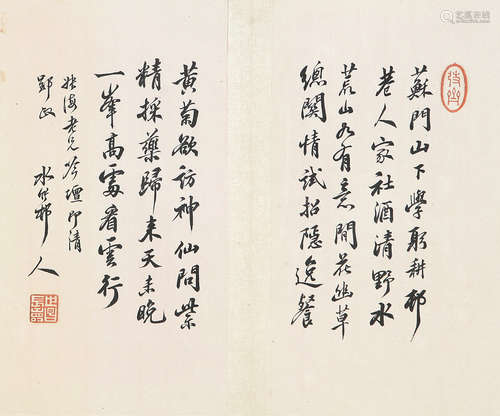 蘇門山下學躬耕郝
巷人家社酒清野水
荒山如有意閒花幽草
總關情試招隱逸餐
黃菊欲訪神仙問紫
精採藥歸來天未晚
一峯高處看雲行
老兄吟壇即清
郢政
水竹邨人